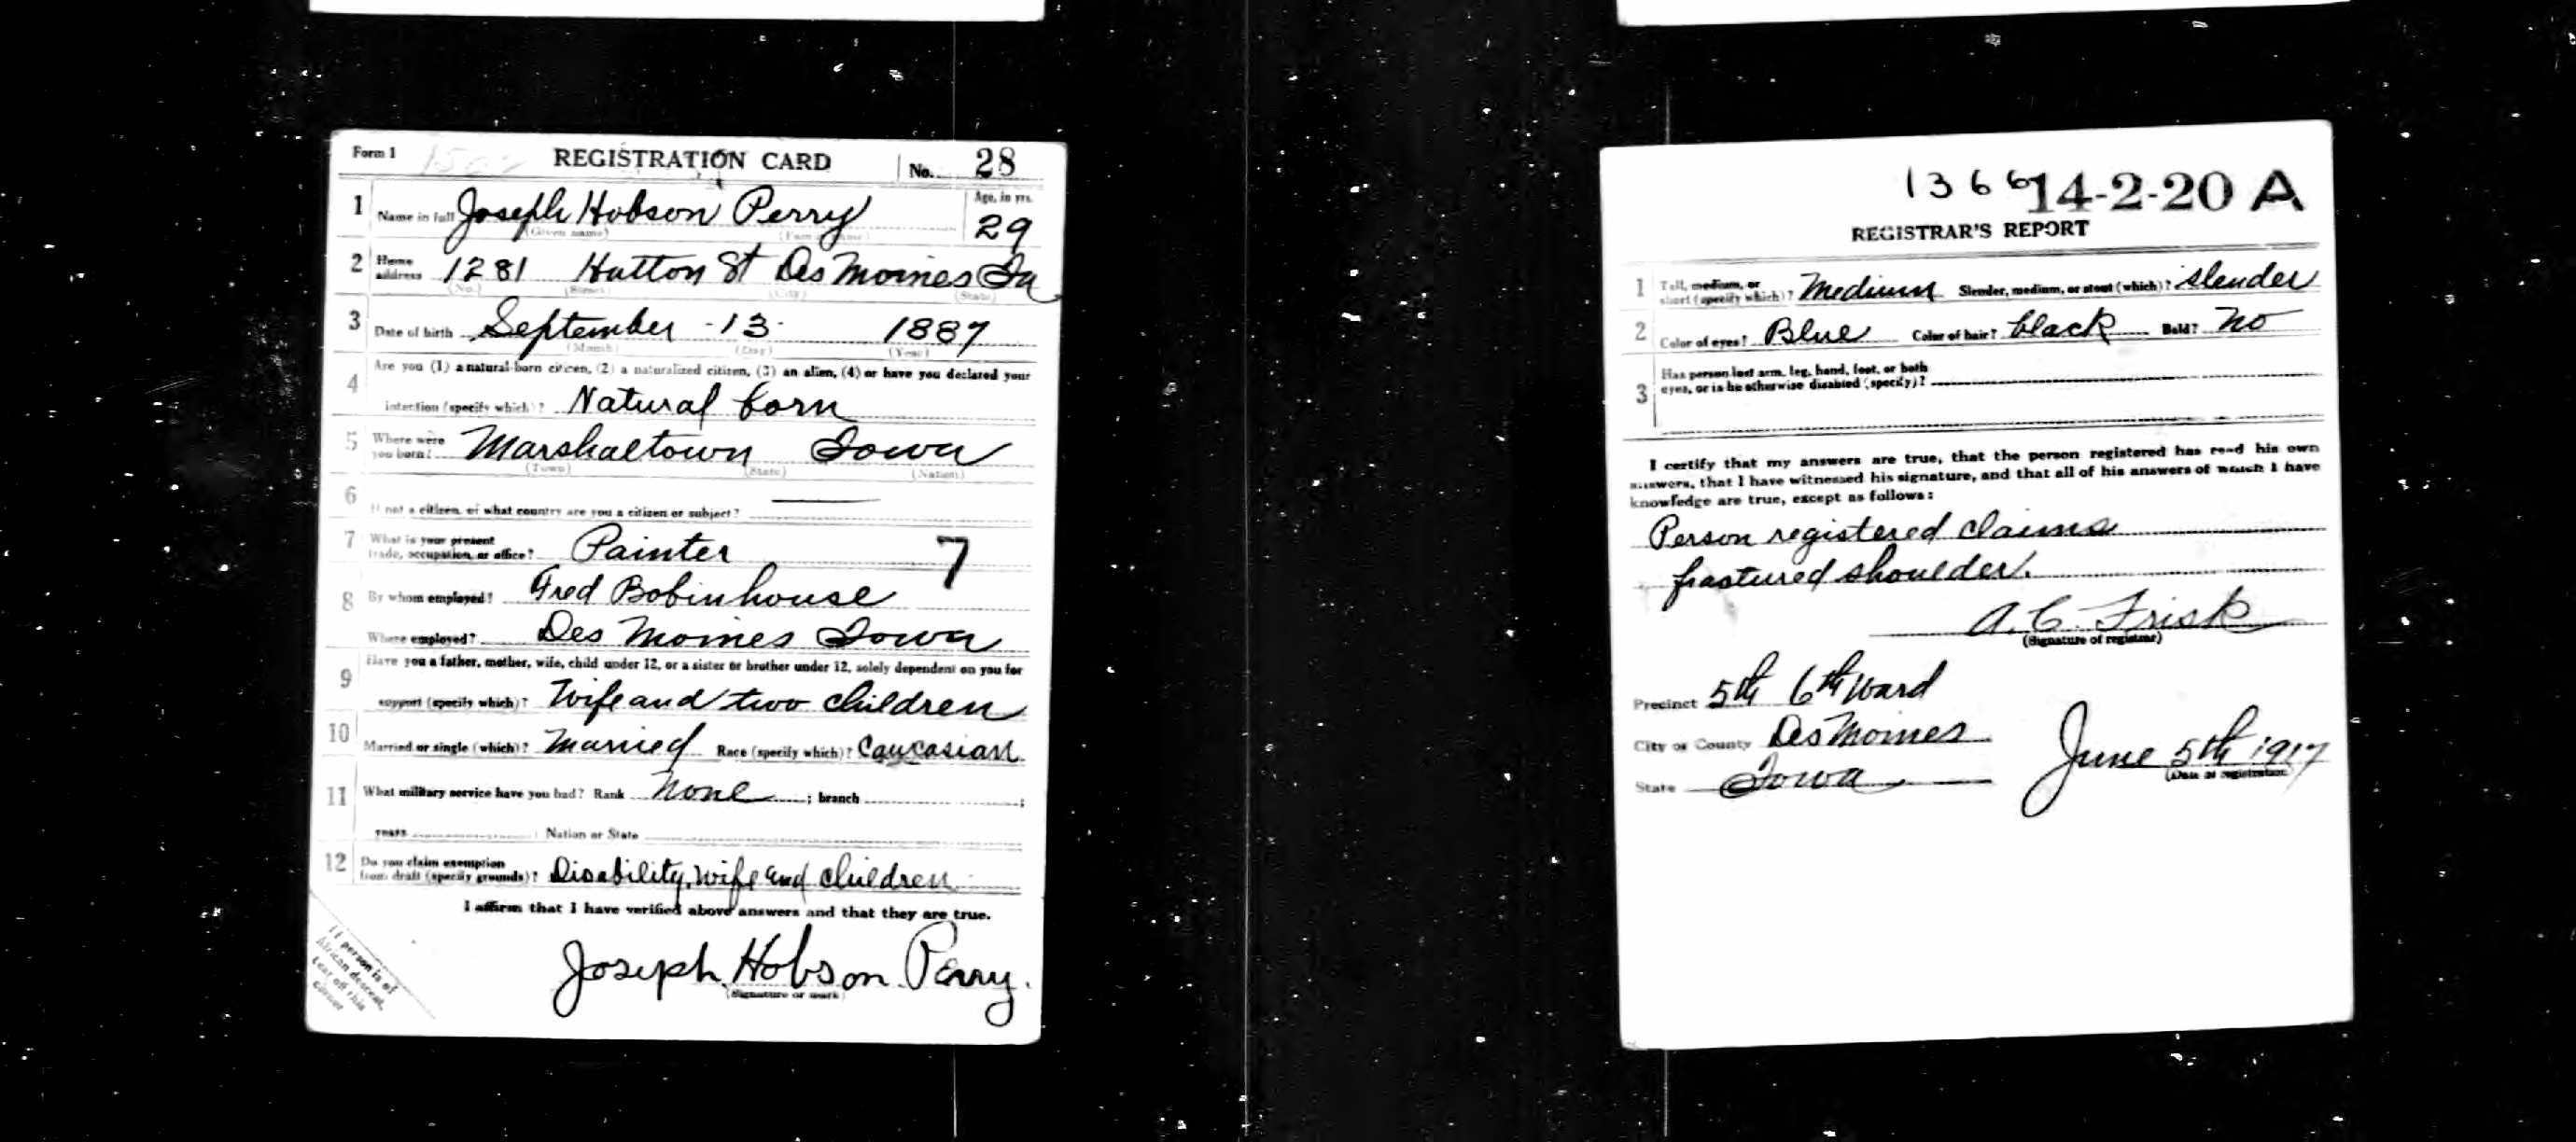 Form 1 REGISTRATION CARD No. 28
1 Name in full Joseph Hobson Perry Age, in yrs. 29
(Given name) (Family name)
2 Home address 1281 Hutton St Des Moines Ia
(No.) (Street) (City) (State)
3 Date of birth September 13 1887
(Month) (Day) (Year)
4 Are you (1) a natural-born citizen, (2) a naturalized citizen, (3) an alien, (4) or have you declared your
intention (specify which)? Natural born
5 Where were you born? Marshaltown Iowa
(Town) (State) (Nation)
6 If not a citizen, of what country are you a citizen or subject?
7 What is your present trade, occupation, or office? Painter 7
8 By whom employed? Fred Bobinhouse
Where employed? Des Moines Iowa
9 Have you a father, mother, wife, child under 12, or a sister or brother under 12, solely dependent on you for
support (specify which)? Wife and two children
10 Married or single (which)? Married Race (specify which)? Caucasian
11 What military service have you had? Rank None ; branch ;
years Nation or State
12 Do you claim exemption from draft (specify grounds)? Disability, wife and children
I affirm that I have verified above answers and that they are true.
Joseph Hobson Perry.
(Signature or mark)
If person is of
African descent,
tear off this
corner
136614-2-20 A
REGISTRAR'S REPORT
1 Tall, medium, or short (specify which)? Medium Slender, medium, or stout (which)? slender
2 Color of eyes? Blue Color of hair? black Bald? No
3 Has person lost arm, leg, hand, foot, or both
eyes, or is he otherwise disabled (specify)?
I certify that my answers are true, that the person registered has read his own
answers, that I have witnessed his signature, and that all of his answers of which I have
knowledge are true, except as follows:
Person registered claims
fractured shoulder.
A. C. Frisk
(Signature of registrar)
Precinct 5th 6th Ward
City or County Des Moines
State Iowa
June 5th 1917
(Date of registration)